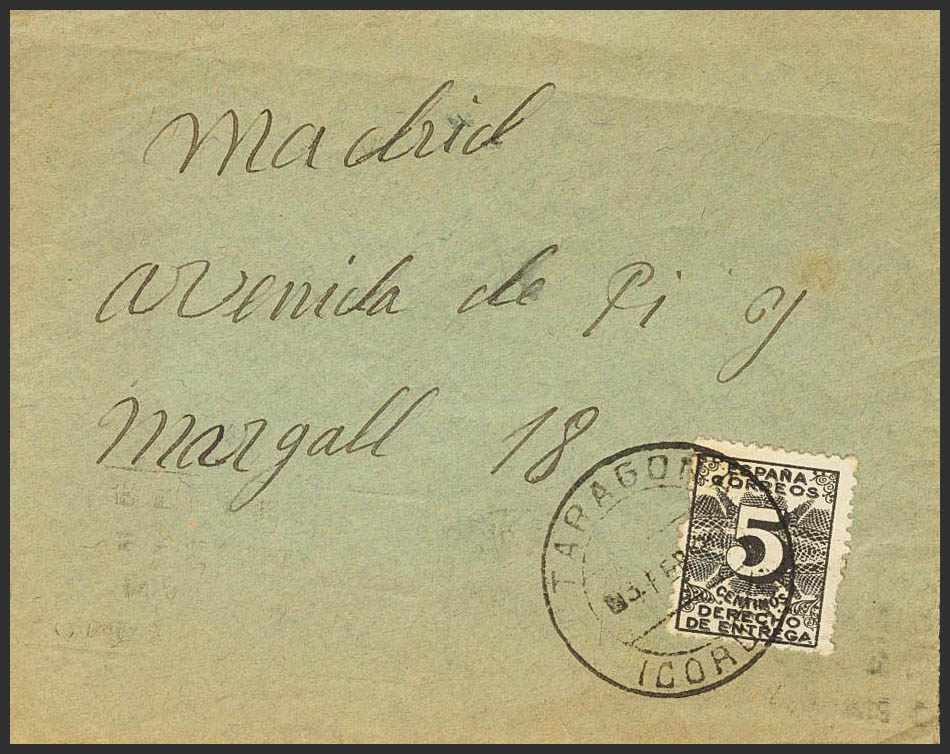 Madrid
avenida de Pi y
Margall 18
ESPAÑA
CORREOS
5
CENTIMOS
DERECHO
DE ENTREGA